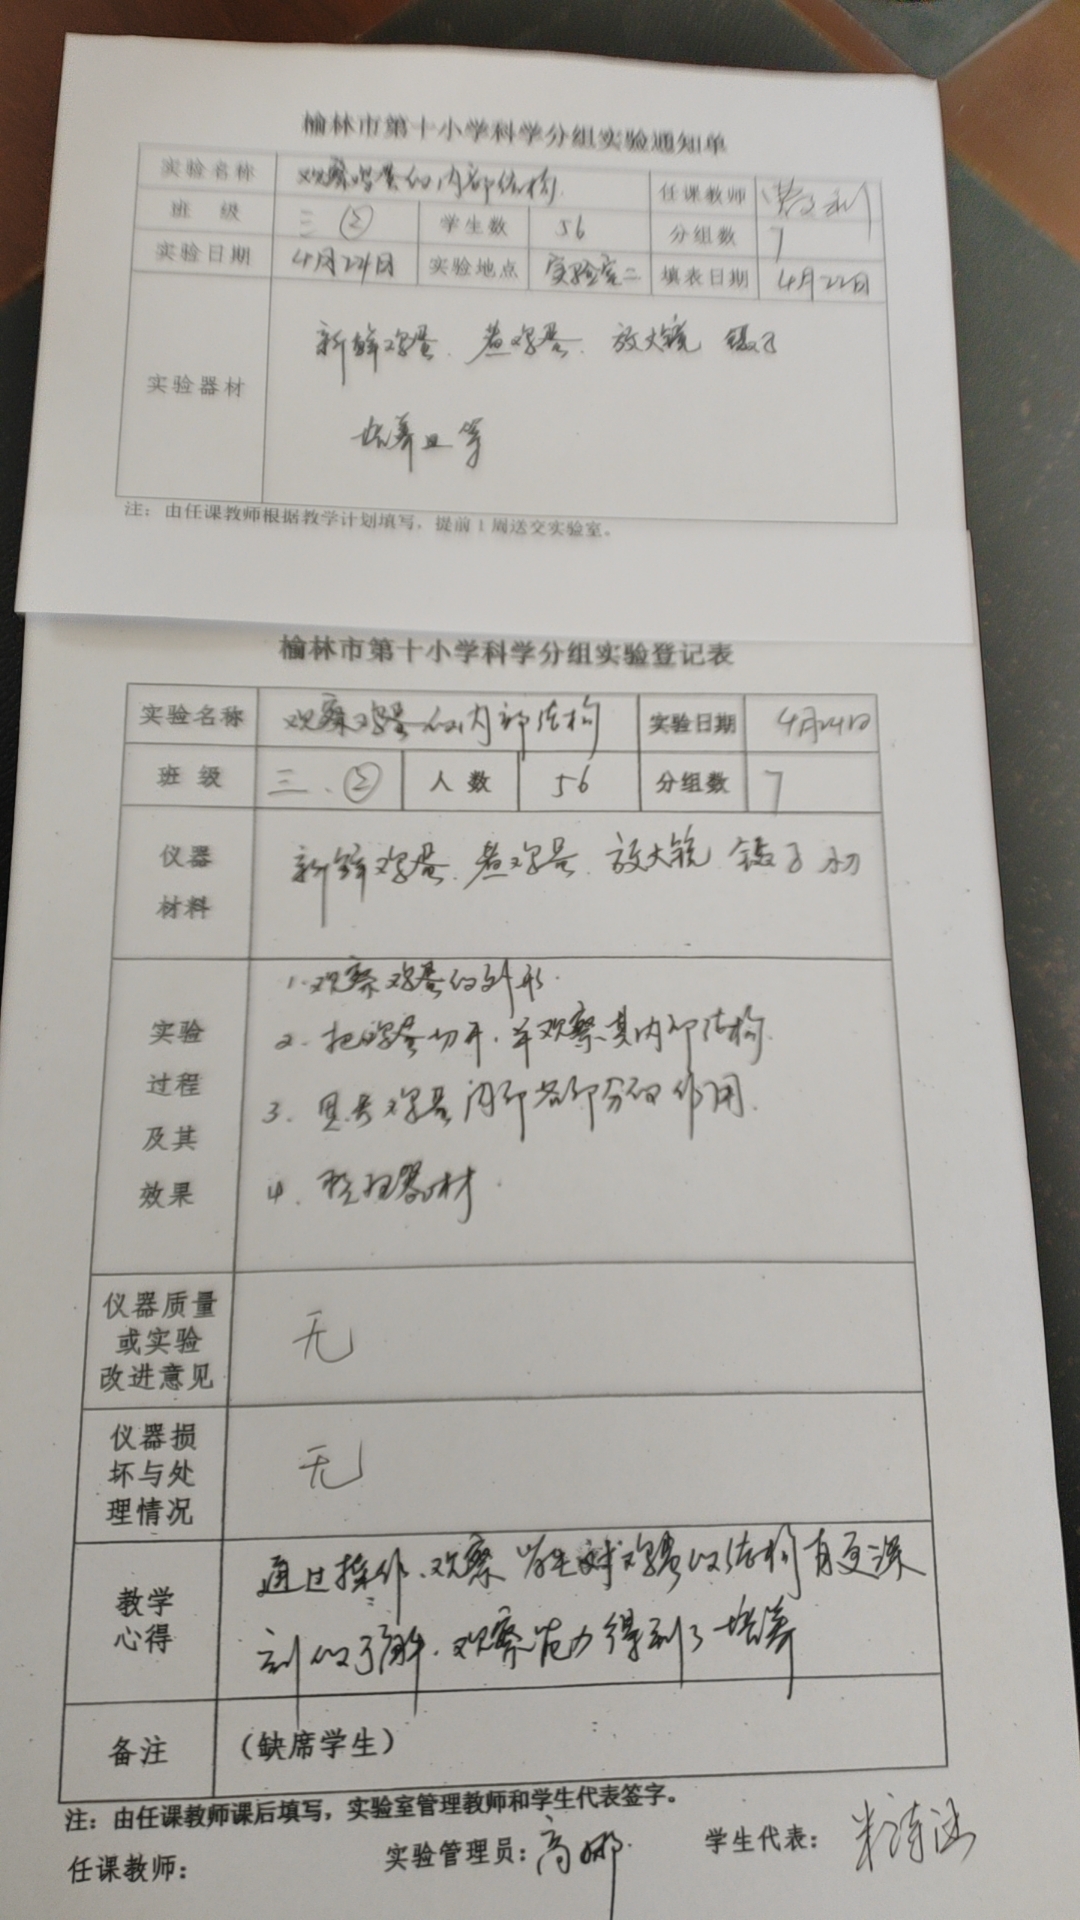 榆林市第十小学科学分组实验通知单
实验名称 观察鸡蛋的内部结构. 任课教师
班 级 三② 学生数 56 分组数 7
实验日期 4月24日 实验地点 实验室二 填表日期 4月22日
实验器材 新鲜鸡蛋、煮鸡蛋、放大镜 镊子
培养皿等
注：由任课教师根据教学计划填写，提前1周送交实验室。
榆林市第十小学科学分组实验登记表
实验名称 观察鸡蛋的内部结构 实验日期 4月24日
班 级 三、② 人 数 56 分组数 7
仪器
材料
新鲜鸡蛋、煮鸡蛋、放大镜 镊子 小刀
实验
过程
及其
效果
1.观察鸡蛋的外形.
2.把鸡蛋切开,并观察其内部结构.
3.思考鸡蛋内部各部分的作用.
4.整理器材.
仪器质量
或实验
改进意见
无
仪器损
坏与处
理情况
无
教学
心得
通过操作、观察 学生对鸡蛋的结构有更深
刻的了解.观察能力得到了培养
备注 （缺席学生）
注：由任课教师课后填写，实验室管理教师和学生代表签字。
任课教师： 实验管理员：高娜. 学生代表：